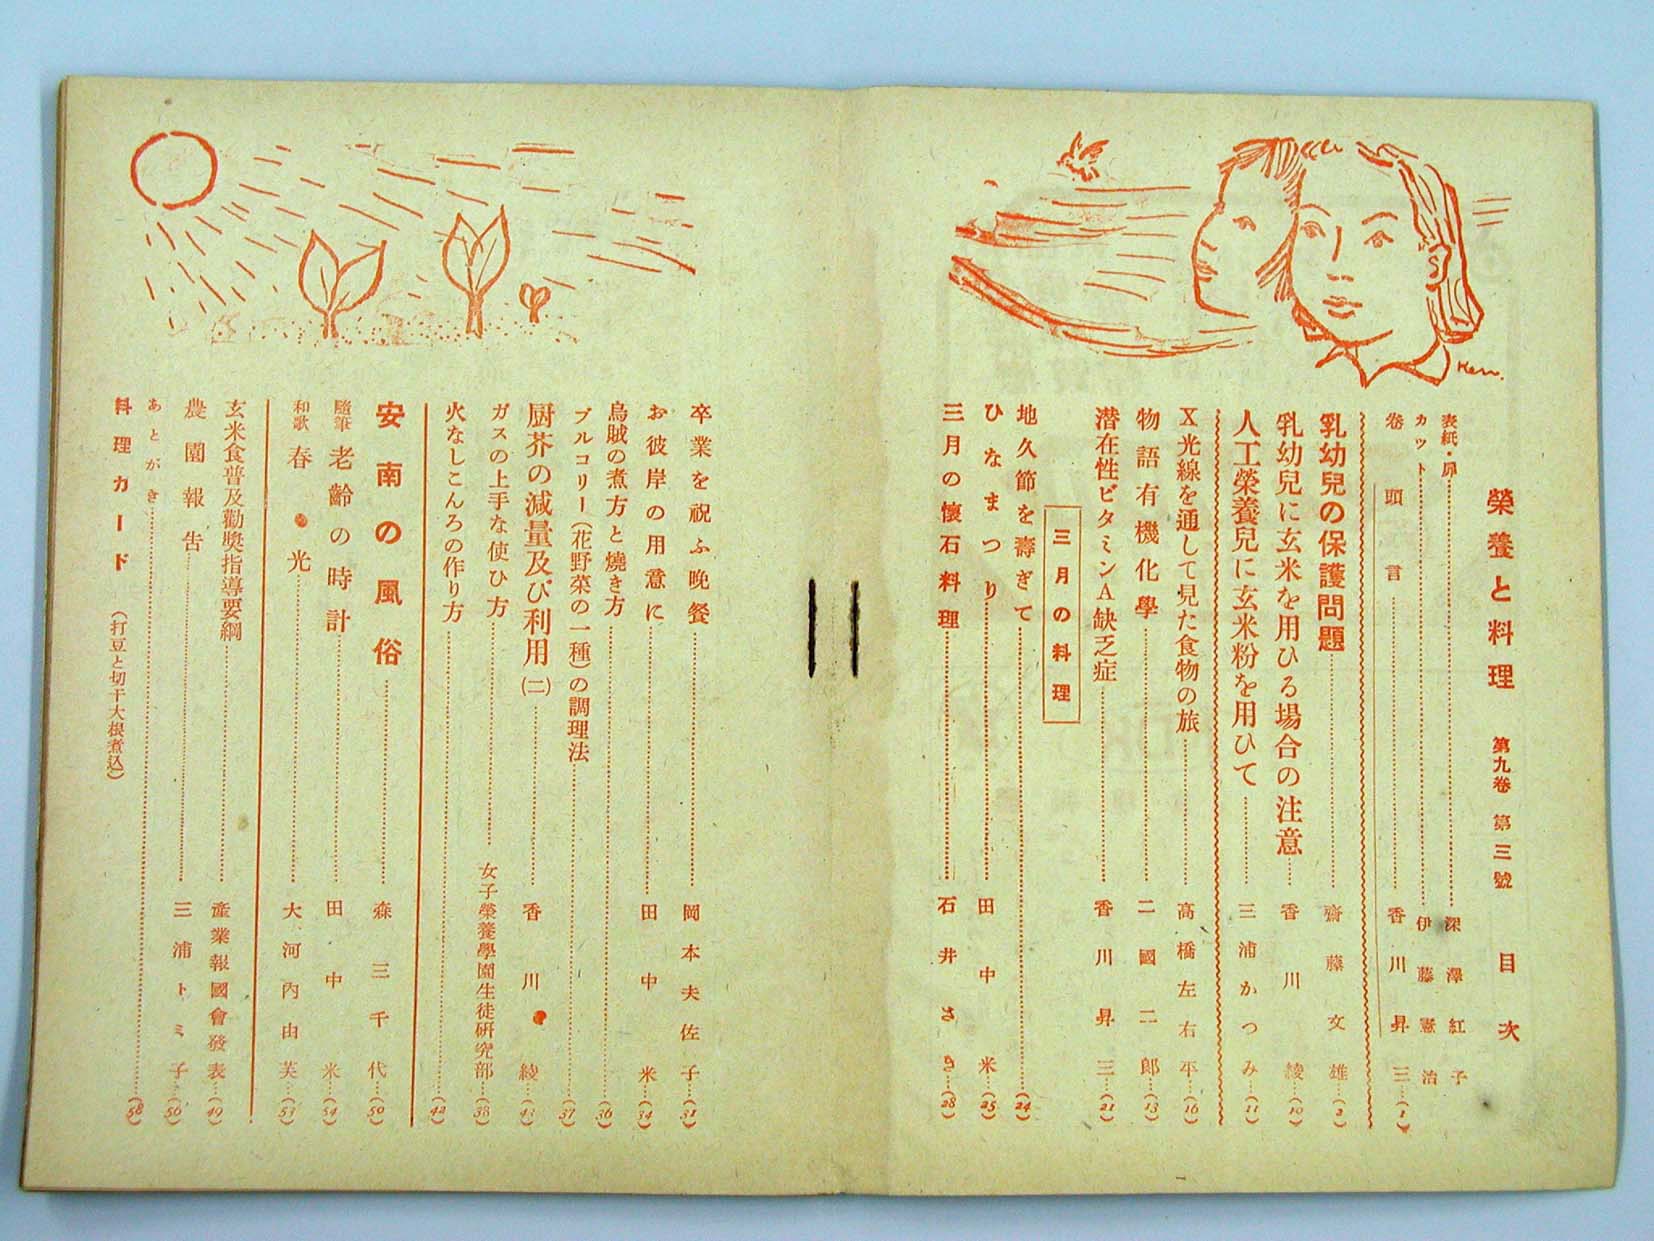 榮養と料理 第九卷 第三號 目次
表紙・扉 深澤紅子
カット 伊藤憲治
卷頭言 香川昇三 (1)
乳幼兒の保護問題 齋藤文雄 (2)
乳幼兒に玄米を用ひる場合の注意 香川綾 (10)
人工榮養兒に玄米粉を用ひて 三浦かつみ (11)
X光線を通して見た食物の旅 高橋左右平 (16)
物語有機化學 二國二郎 (13)
潜在性ビタミンA缺乏症 香川昇三 (21)
三月の料理
地久節を壽ぎて (24)
ひなまつり 田中米 (25)
三月の懷石料理 石井さき (28)
Ken.
卒業を祝ふ晩餐 岡本夫佐子 (31)
お彼岸の用意に 田中米 (34)
烏賊の煮方と燒き方 (36)
ブルコリー(花野菜の一種)の調理法 (37)
厨芥の減量及び利用(二) 香川綾 (43)
ガスの上手な使ひ方 女子榮養學園生徒研究部 (38)
火なしこんろの作り方 (42)
安南の風俗 森三千代 (50)
隨筆 老齡の時計 田中米 (54)
和歌 春光 大河内由芙 (53)
玄米食普及勸奬指導要綱 產業報國會發表 (49)
農園報告 三浦トミ子 (56)
あとがき (58)
料理カード (打豆と切干大根煮込)